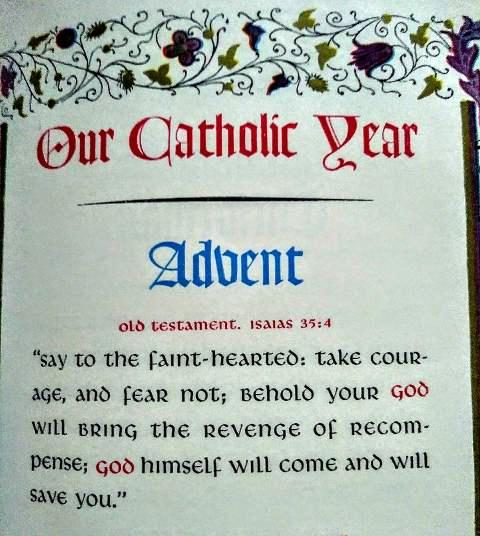 Our Catholic Year
Advent
old testament. Isaias 35:4
“Say to the faint-hearted: take cour-
age, and fear not; behold your God
will bring the revenge of recom-
pense; God himself will come and will
save you.”